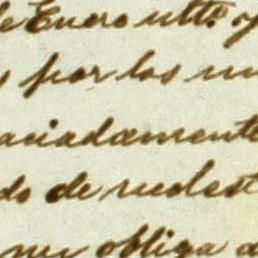 de Enero ulto. y
por los
aciadamente
do de molest
me obliga a